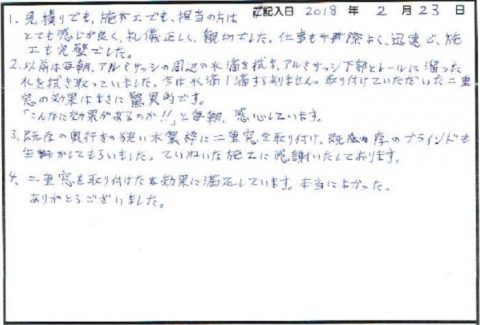 ご記入日 2018 年 2 月 23 日
1. 見積りでも、施工でも、担当の方は
とても感じが良く、礼儀正しく、親切でした。仕事も手際よく、迅速で、施
工も完璧でした。
2. 以前は毎朝、アルミサッシの周辺の水滴を拭き、アルミサッシ下部とレールに溜った
水を拭き取っていました。今は水滴1滴すらありません。取り付けていただいた二重
窓の効果はまさに驚異的です。
「こんなに効果があるのか!!」と毎朝、感心しています。
3. 既存の奥行きの狭い木製枠に二重窓を取り付け、既存のブラインドも
生かしてもらいました。ていねいな施工に感謝いたしております。
4. 二重窓を取り付けた効果に満足しています。本当によかった。
ありがとうございました。